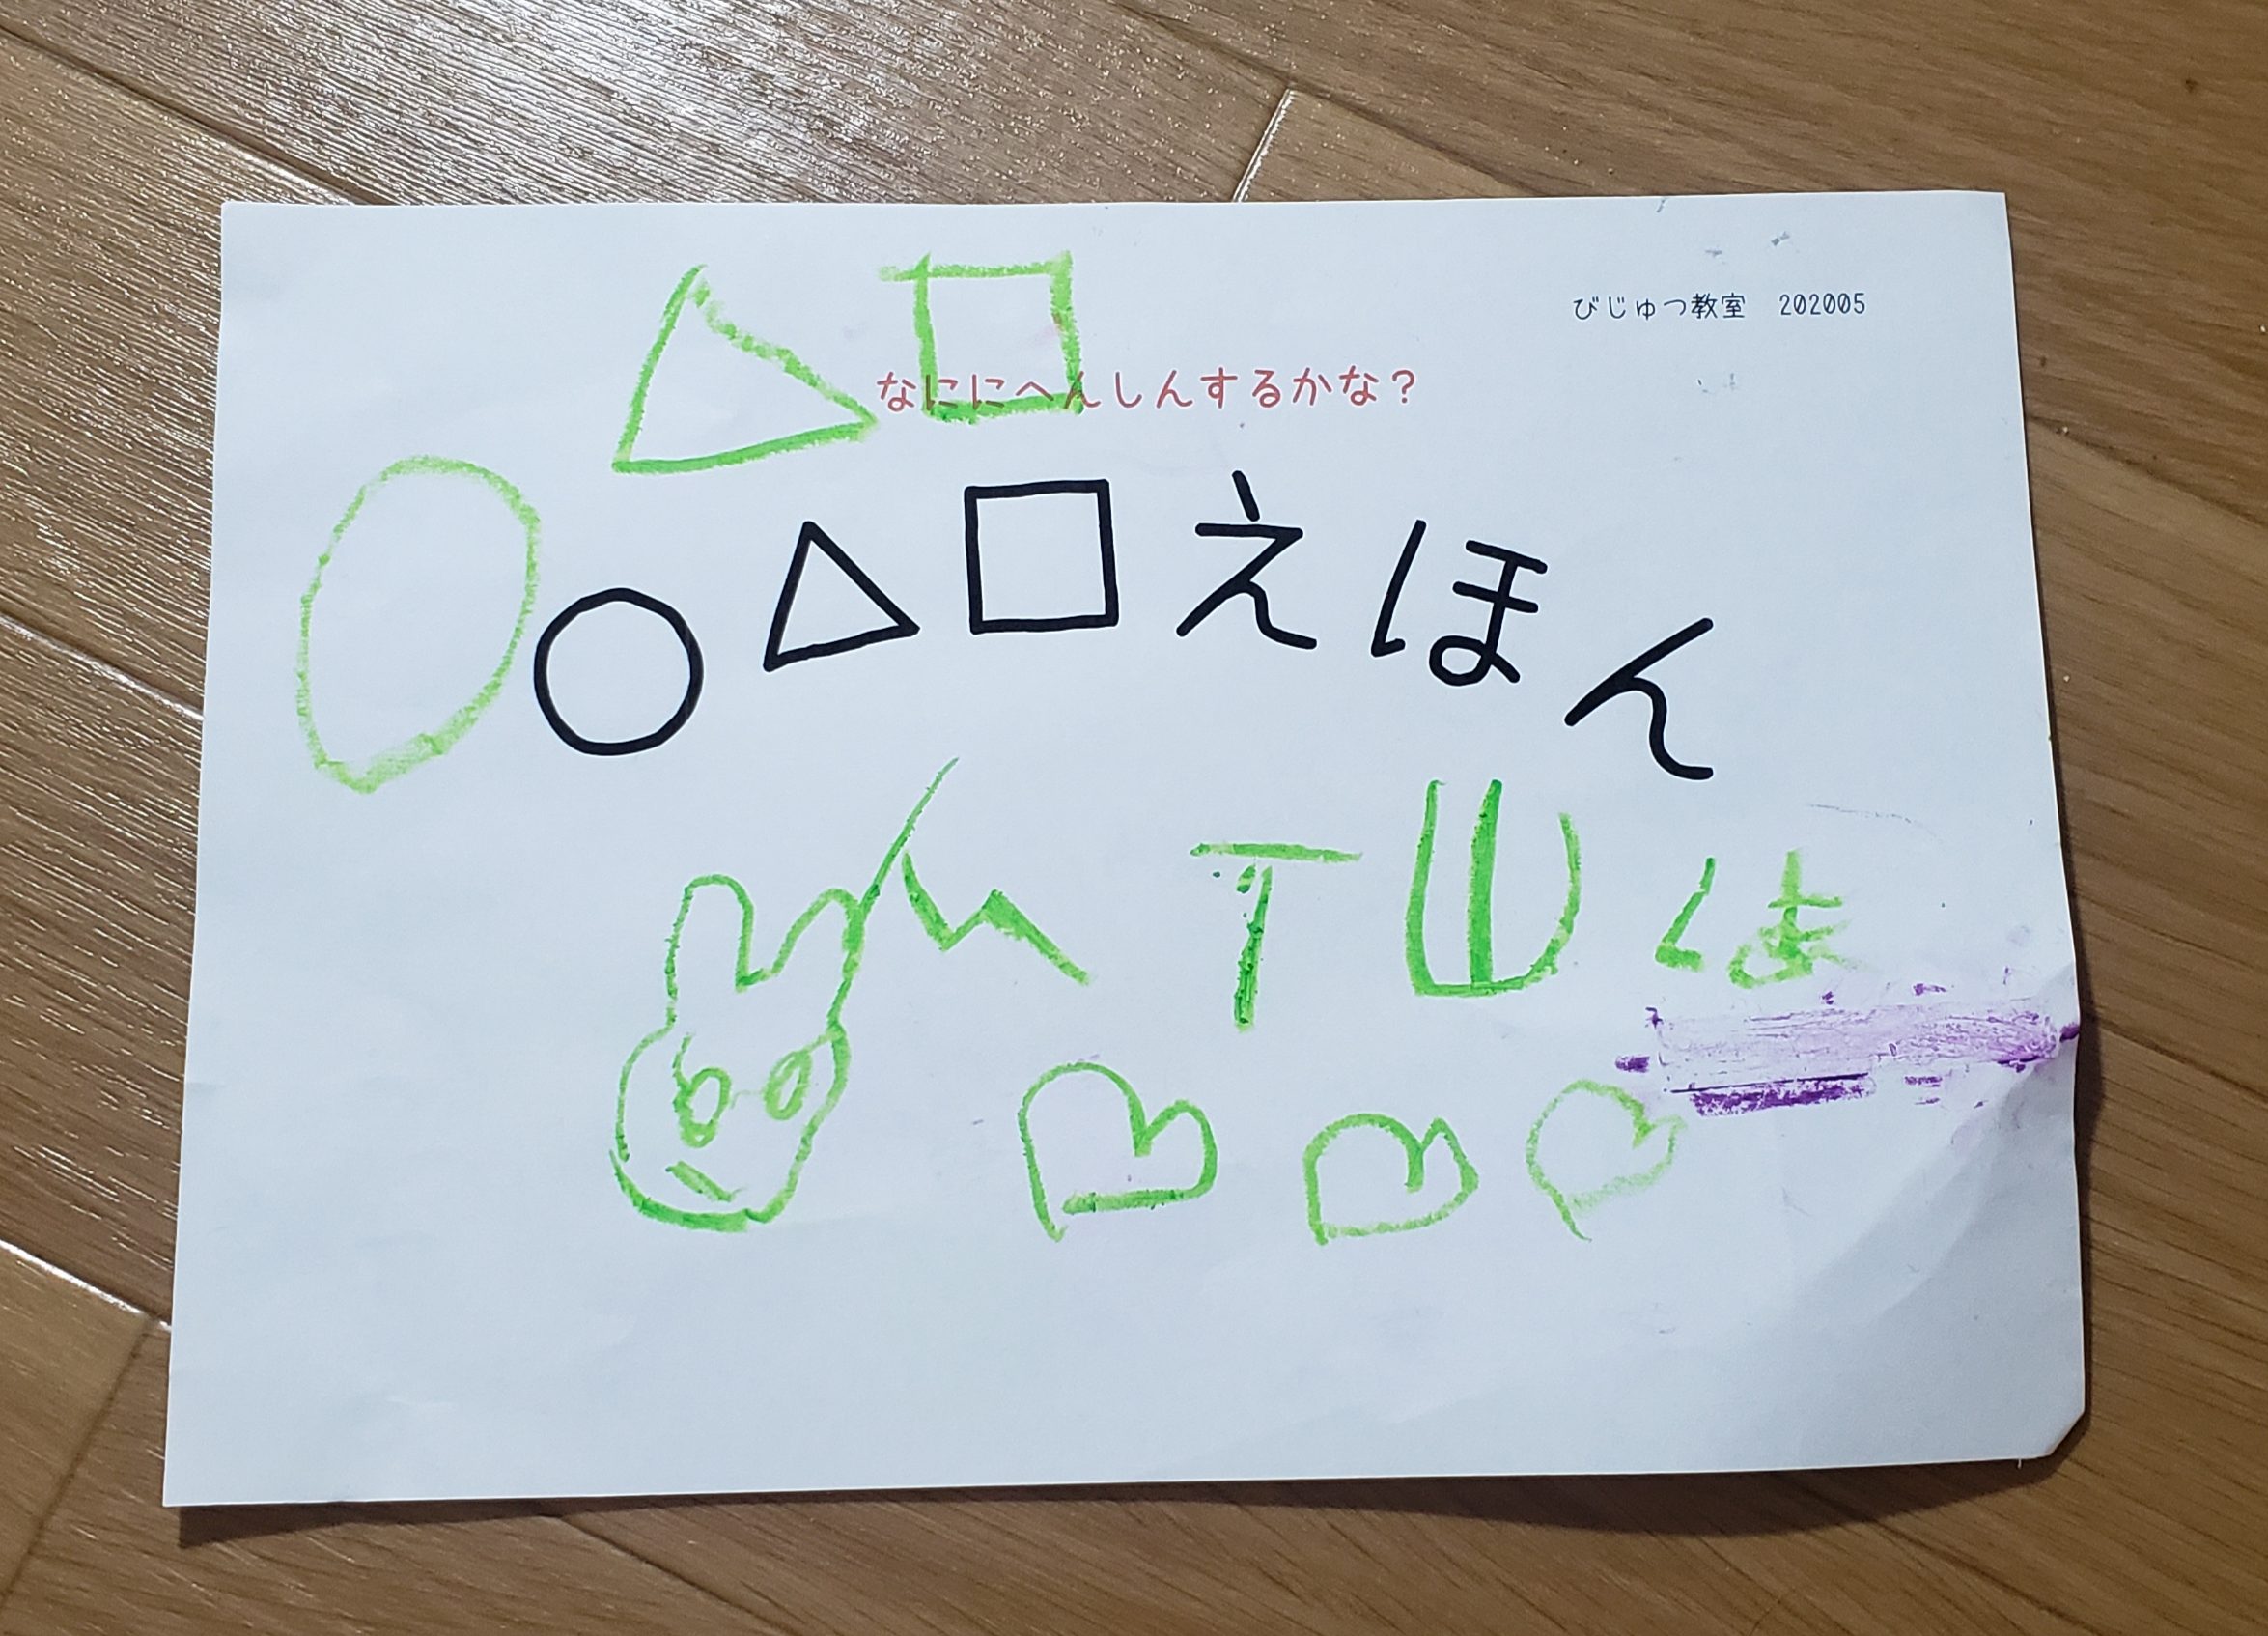 びじゅつ教室 202005
なににへんしんするかな？
○△□えほん